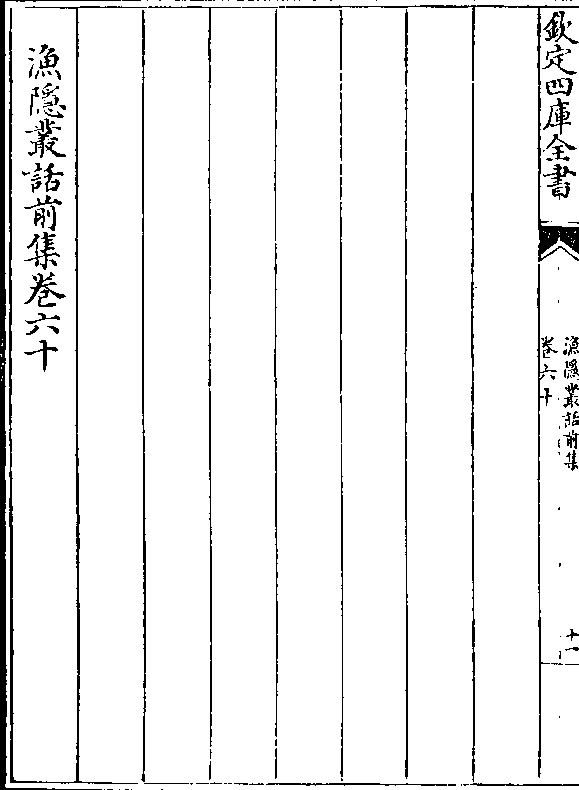 欽定四庫全書
漁隱叢話前集
卷六十
十一
漁隱叢話前集卷六十